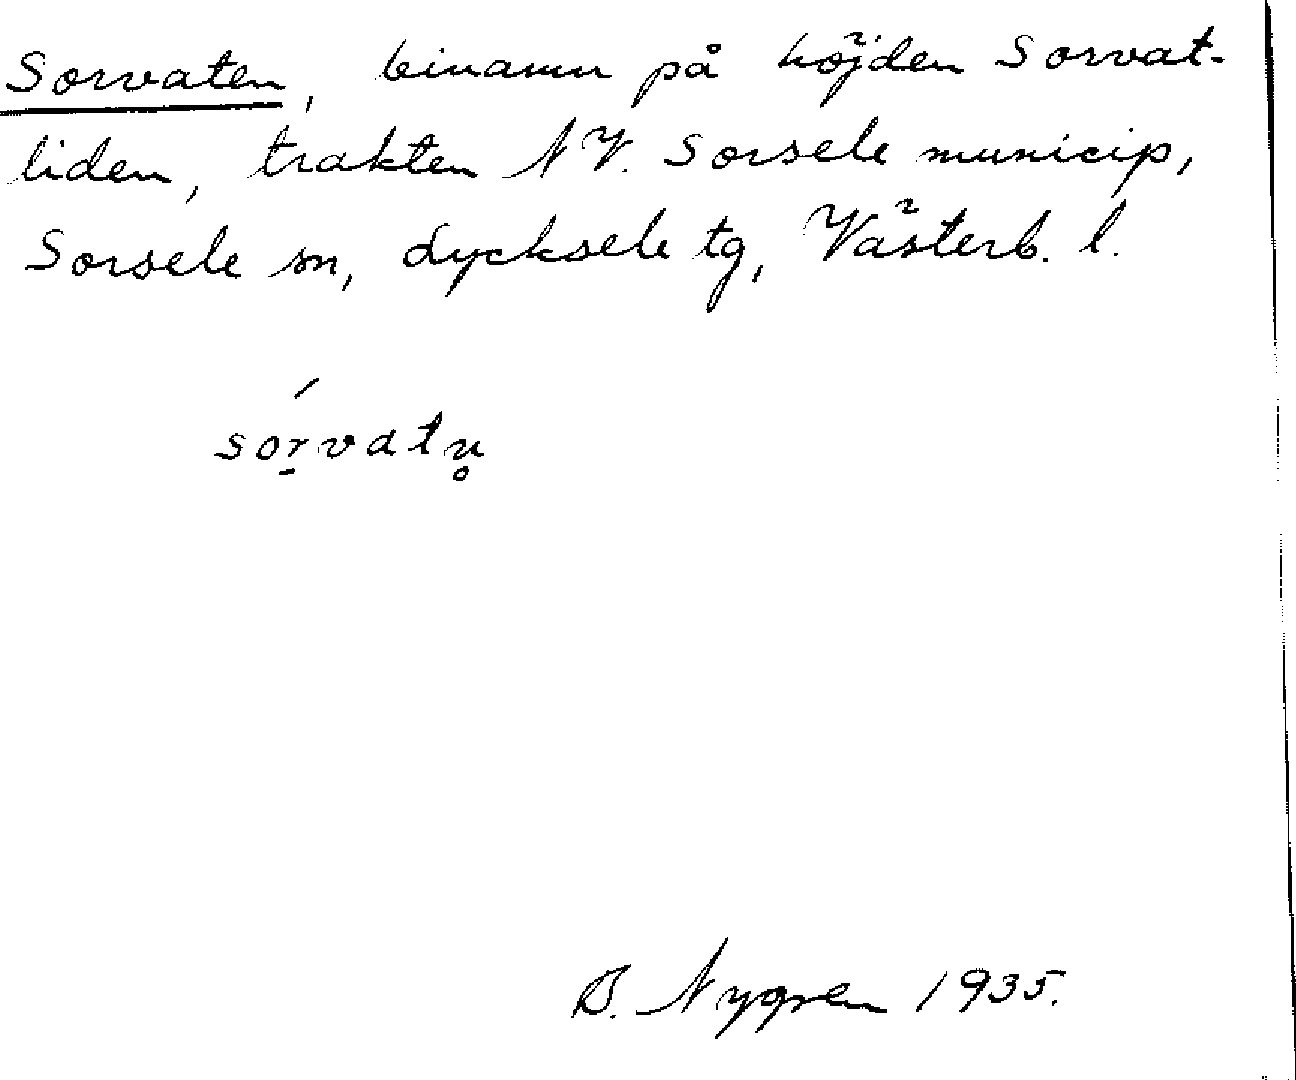 Sorvaten, binamn på höjden Sorvat-
liden, trakten NV. Sorsele municip,
Sorsele sn, Lycksele tg, Västerb. l.
só̱rvatn̥
B. Nygren 1935.